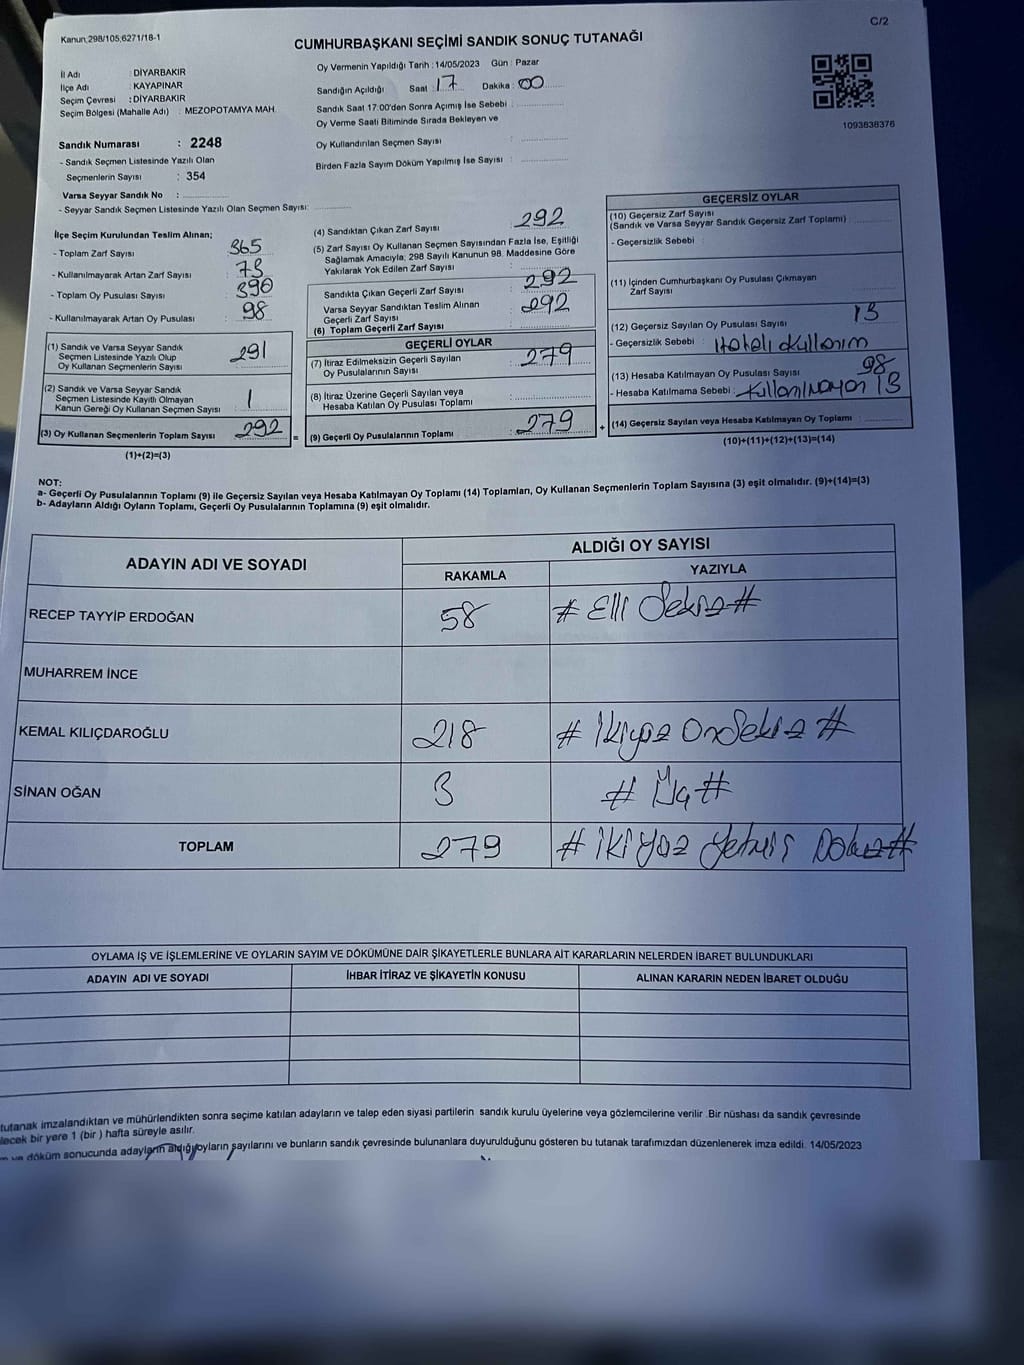 C/2
Kanun,298/105,6271/18-1
CUMHURBAŞKANI SEÇİMİ SANDIK SONUÇ TUTANAĞI
İl Adı : DİYARBAKIR
İlçe Adı : KAYAPINAR
Seçim Çevresi : DİYARBAKIR
Seçim Bölgesi (Mahalle Adı) : MEZOPOTAMYA MAH.
Oy Vermenin Yapıldığı Tarih : 14/05/2023 Gün : Pazar
Sandığın Açıldığı Saat : 17 Dakika : 00
Sandık Saat 17:00'den Sonra Açımış İse Sebebi :
Oy Verme Saati Bitiminde Sırada Bekleyen ve
Oy Kullandırılan Seçmen Sayısı :
Birden Fazla Sayım Döküm Yapılmış İse Sayısı :
1093838376
Sandık Numarası : 2248
- Sandık Seçmen Listesinde Yazılı Olan
Seçmenlerin Sayısı : 354
Varsa Seyyar Sandık No :
- Seyyar Sandık Seçmen Listesinde Yazılı Olan Seçmen Sayısı:
İlçe Seçim Kurulundan Teslim Alınan;
- Toplam Zarf Sayısı : 365
- Kullanılmayarak Artan Zarf Sayısı : 73
- Toplam Oy Pusulası Sayısı : 390
- Kullanılmayarak Artan Oy Pusulası : 98
(1) Sandık ve Varsa Seyyar Sandık
Seçmen Listesinde Yazılı Olup
Oy Kullanan Seçmenlerin Sayısı : 291
(2) Sandık ve Varsa Seyyar Sandık
Seçmen Listesinde Kayıtlı Olmayan
Kanun Gereği Oy Kullanan Seçmen Sayısı : 1
(3) Oy Kullanan Seçmenlerin Toplam Sayısı : 292
(1)+(2)=(3)
(4) Sandıktan Çıkan Zarf Sayısı 292
(5) Zarf Sayısı Oy Kullanan Seçmen Sayısından Fazla İse, Eşitliği
Sağlamak Amacıyla; 298 Sayılı Kanunun 98. Maddesine Göre
Yakılarak Yok Edilen Zarf Sayısı
Sandıkta Çıkan Geçerli Zarf Sayısı : 292
Varsa Seyyar Sandıktan Teslim Alınan
Geçerli Zarf Sayısı : 292
(6) Toplam Geçerli Zarf Sayısı
GEÇERLİ OYLAR
(7) İtiraz Edilmeksizin Geçerli Sayılan
Oy Pusulalarının Sayısı : 279
(8) İtiraz Üzerine Geçerli Sayılan veya
Hesaba Katılan Oy Pusulası Toplamı :
= (9) Geçerli Oy Pusulalarının Toplamı : 279 +
GEÇERSİZ OYLAR
(10) Geçersiz Zarf Sayısı
(Sandık ve Varsa Seyyar Sandık Geçersiz Zarf Toplamı) :
- Geçersizlik Sebebi :
(11) İçinden Cumhurbaşkanı Oy Pusulası Çıkmayan
Zarf Sayısı :
(12) Geçersiz Sayılan Oy Pusulası Sayısı : 13
- Geçersizlik Sebebi : Hatalı Kullanım
(13) Hesaba Katılmayan Oy Pusulası Sayısı : 98
- Hesaba Katılmama Sebebi : Kullanılmayan 13
(14) Geçersiz Sayılan veya Hesaba Katılmayan Oy Toplamı :
(10)+(11)+(12)+(13)=(14)
NOT:
a- Geçerli Oy Pusulalarının Toplamı (9) ile Geçersiz Sayılan veya Hesaba Katılmayan Oy Toplamı (14) Toplamları, Oy Kullanan Seçmenlerin Toplam Sayısına (3) eşit olmalıdır. (9)+(14)=(3)
b- Adayların Aldığı Oyların Toplamı, Geçerli Oy Pusulalarının Toplamına (9) eşit olmalıdır.
ADAYIN ADI VE SOYADI
ALDIĞI OY SAYISI
RAKAMLA YAZIYLA
RECEP TAYYİP ERDOĞAN 58 # Elli Sekiz #
MUHARREM İNCE
KEMAL KILIÇDAROĞLU 218 # İkiyüz OnSekiz #
SİNAN OĞAN 3 # Üç #
TOPLAM 279 # İkiyüz Yetmiş Dokuz #
OYLAMA İŞ VE İŞLEMLERİNE VE OYLARIN SAYIM VE DÖKÜMÜNE DAİR ŞİKAYETLERLE BUNLARA AİT KARARLARIN NELERDEN İBARET BULUNDUKLARI
ADAYIN ADI VE SOYADI İHBAR İTİRAZ VE ŞİKAYETİN KONUSU ALINAN KARARIN NEDEN İBARET OLDUĞU
tutanak imzalandıktan ve mühürlendikten sonra seçime katılan adayların ve talep eden siyasi partilerin sandık kurulu üyelerine veya gözlemcilerine verilir .Bir nüshası da sandık çevresinde
lecek bir yere 1 (bir ) hafta süreyle asılır.
ve döküm sonucunda adayların aldığı oyların sayılarını ve bunların sandık çevresinde bulunanlara duyurulduğunu gösteren bu tutanak tarafımızdan düzenlenerek imza edildi. 14/05/2023